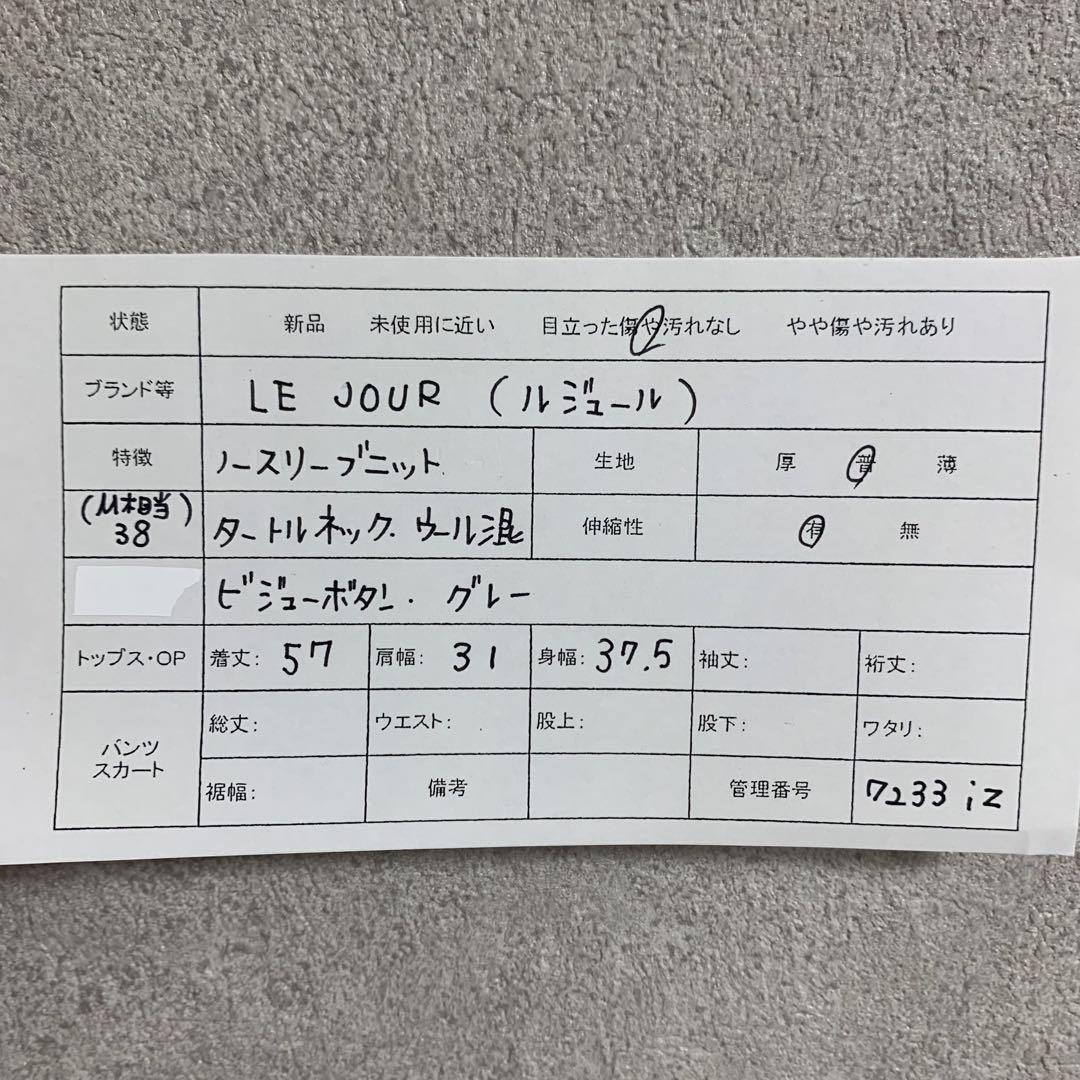 状態 新品 未使用に近い 目立った傷や汚れなし やや傷や汚れあり
ブランド等 LE JOUR (ルジュール)
特徴 ノースリーブニット 生地 厚 普 薄
(M相当) 38 タートルネック. ウール混 伸縮性 有 無
ビジューボタン. グレー
トップス・OP 着丈: 57 肩幅: 31 身幅: 37.5 袖丈: 裄丈:
パンツ スカート 総丈: ウエスト: 股上: 股下: ワタリ:
裾幅: 備考 管理番号 7233 iz